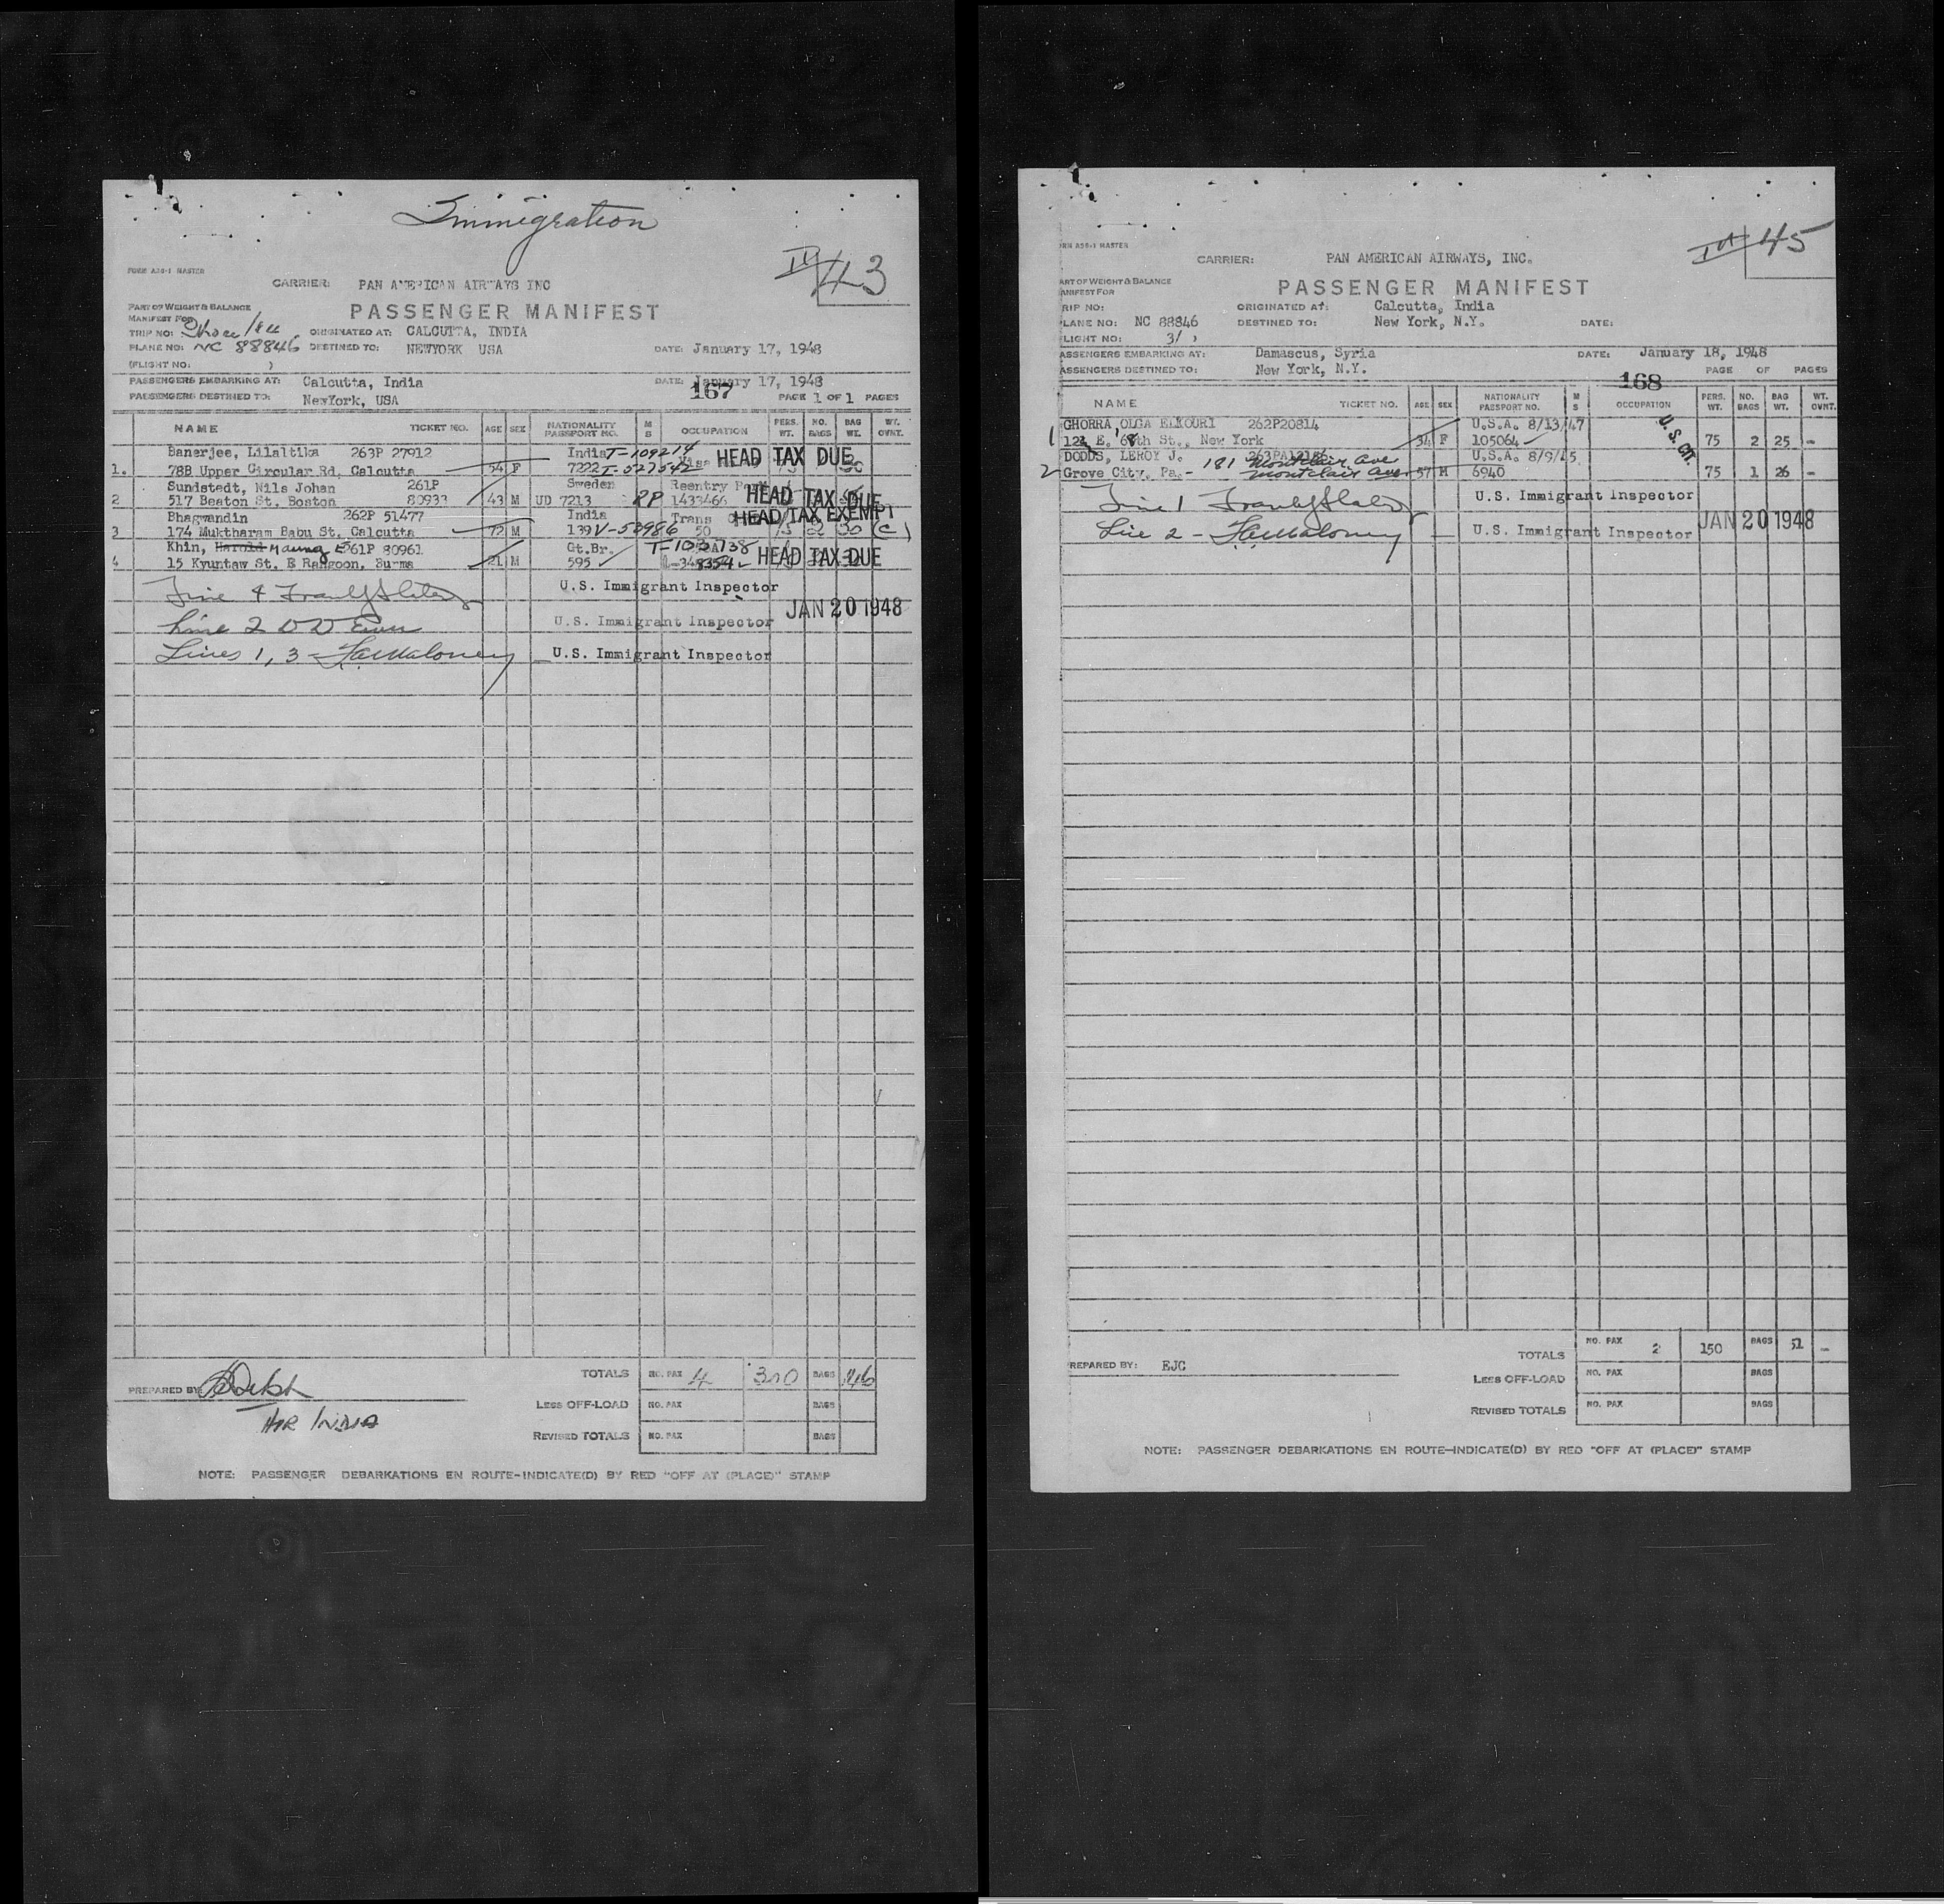 Immigration
43
FORM A20-1 MASTER
CARRIER: PAN AMERICAN AIRWAYS INC
PART OF WEIGHT & BALANCE
MANIFEST FOR
PASSENGER MANIFEST
TRIP NO: ORIGINATED AT: CALCUTTA, INDIA
PLANE NO: NC 88846 DESTINED TO: NEWYORK USA DATE: January 17, 1948
(FLIGHT NO. )
PASSENGERS EMBARKING AT: Calcutta, India DATE: January 17, 1948
167
PASSENGERS DESTINED TO: NewYork, USA PAGE 1 OF 1 PAGES
NAME TICKET NO. AGE SEX NATIONALITY PASSPORT NO. M S OCCUPATION PERS. WT. NO. BAGS BAG WT. WT. OVNT.
Banerjee, Lilaltika 263P 27912 India T-109214
1. 78B Upper Circular Rd, Calcutta 54 F 7222 T-527542 HEAD TAX DUE
Sundstedt, Nils Johan 261P Sweden Reentry
2 517 Beaton St. Boston 80933 43 M UD 7213 RP 1433466 HEAD TAX DUE
Bhagwandin 262P 51477 India Trans HEAD TAX EXEMPT
3 174 Muktharam Babu St, Calcutta 72 M 139 V-53986 50 30 (C)
Khin, Harold Maung E 261P 80961 Gt.Br. T-103738
4 15 Kyuntaw St. E Rangoon, Burma 21 M 595 HEAD TAX DUE
Line 4 U.S. Immigrant Inspector
JAN 20 1948
Line 2 U.S. Immigrant Inspector
Lines 1, 3 - F.A. Maloney U.S. Immigrant Inspector
TOTALS NO. PAX 4 300 BAGS 146
PREPARED BY
AIR INDIA
LESS OFF-LOAD NO. PAX BAGS
REVISED TOTALS NO. PAX BAGS
NOTE: PASSENGER DEBARKATIONS EN ROUTE-INDICATE(D) BY RED "OFF AT (PLACE)" STAMP
45
RM A20-1 MASTER
CARRIER: PAN AMERICAN AIRWAYS, INC.
ART OF WEIGHT & BALANCE
ANIFEST FOR
PASSENGER MANIFEST
RIP NO: ORIGINATED AT: Calcutta, India
LANE NO: NC 88846 DESTINED TO: New York, N.Y. DATE:
LIGHT NO: 3/ )
ASSENGERS EMBARKING AT: Damascus, Syria DATE: January 18, 1948
ASSENGERS DESTINED TO: New York, N.Y. PAGE OF PAGES
168
NAME TICKET NO. AGE SEX NATIONALITY PASSPORT NO. M S OCCUPATION PERS. WT. NO. BAGS BAG WT. WT. OVNT.
GHORRA, OLGA ELKOURI 262P20814 U.S.A. 8/13/47
1 123 E. 68th St., New York 34 F 105064 U.S. CIT. 75 2 25 -
DODDS, LEROY J. 263PA12186 Montclair Ave U.S.A. 8/9/45
2 Grove City, Pa.- 181 Montclair Ave 57 M 6940 75 1 26 -
Line 1 U.S. Immigrant Inspector
JAN 20 1948
Line 2 - F.A. Maloney U.S. Immigrant Inspector
TOTALS NO. PAX 2 150 BAGS 51 -
REPARED BY: EJC
LESS OFF-LOAD NO. PAX BAGS
REVISED TOTALS NO. PAX BAGS
NOTE: PASSENGER DEBARKATIONS EN ROUTE-INDICATE(D) BY RED "OFF AT (PLACE)" STAMP